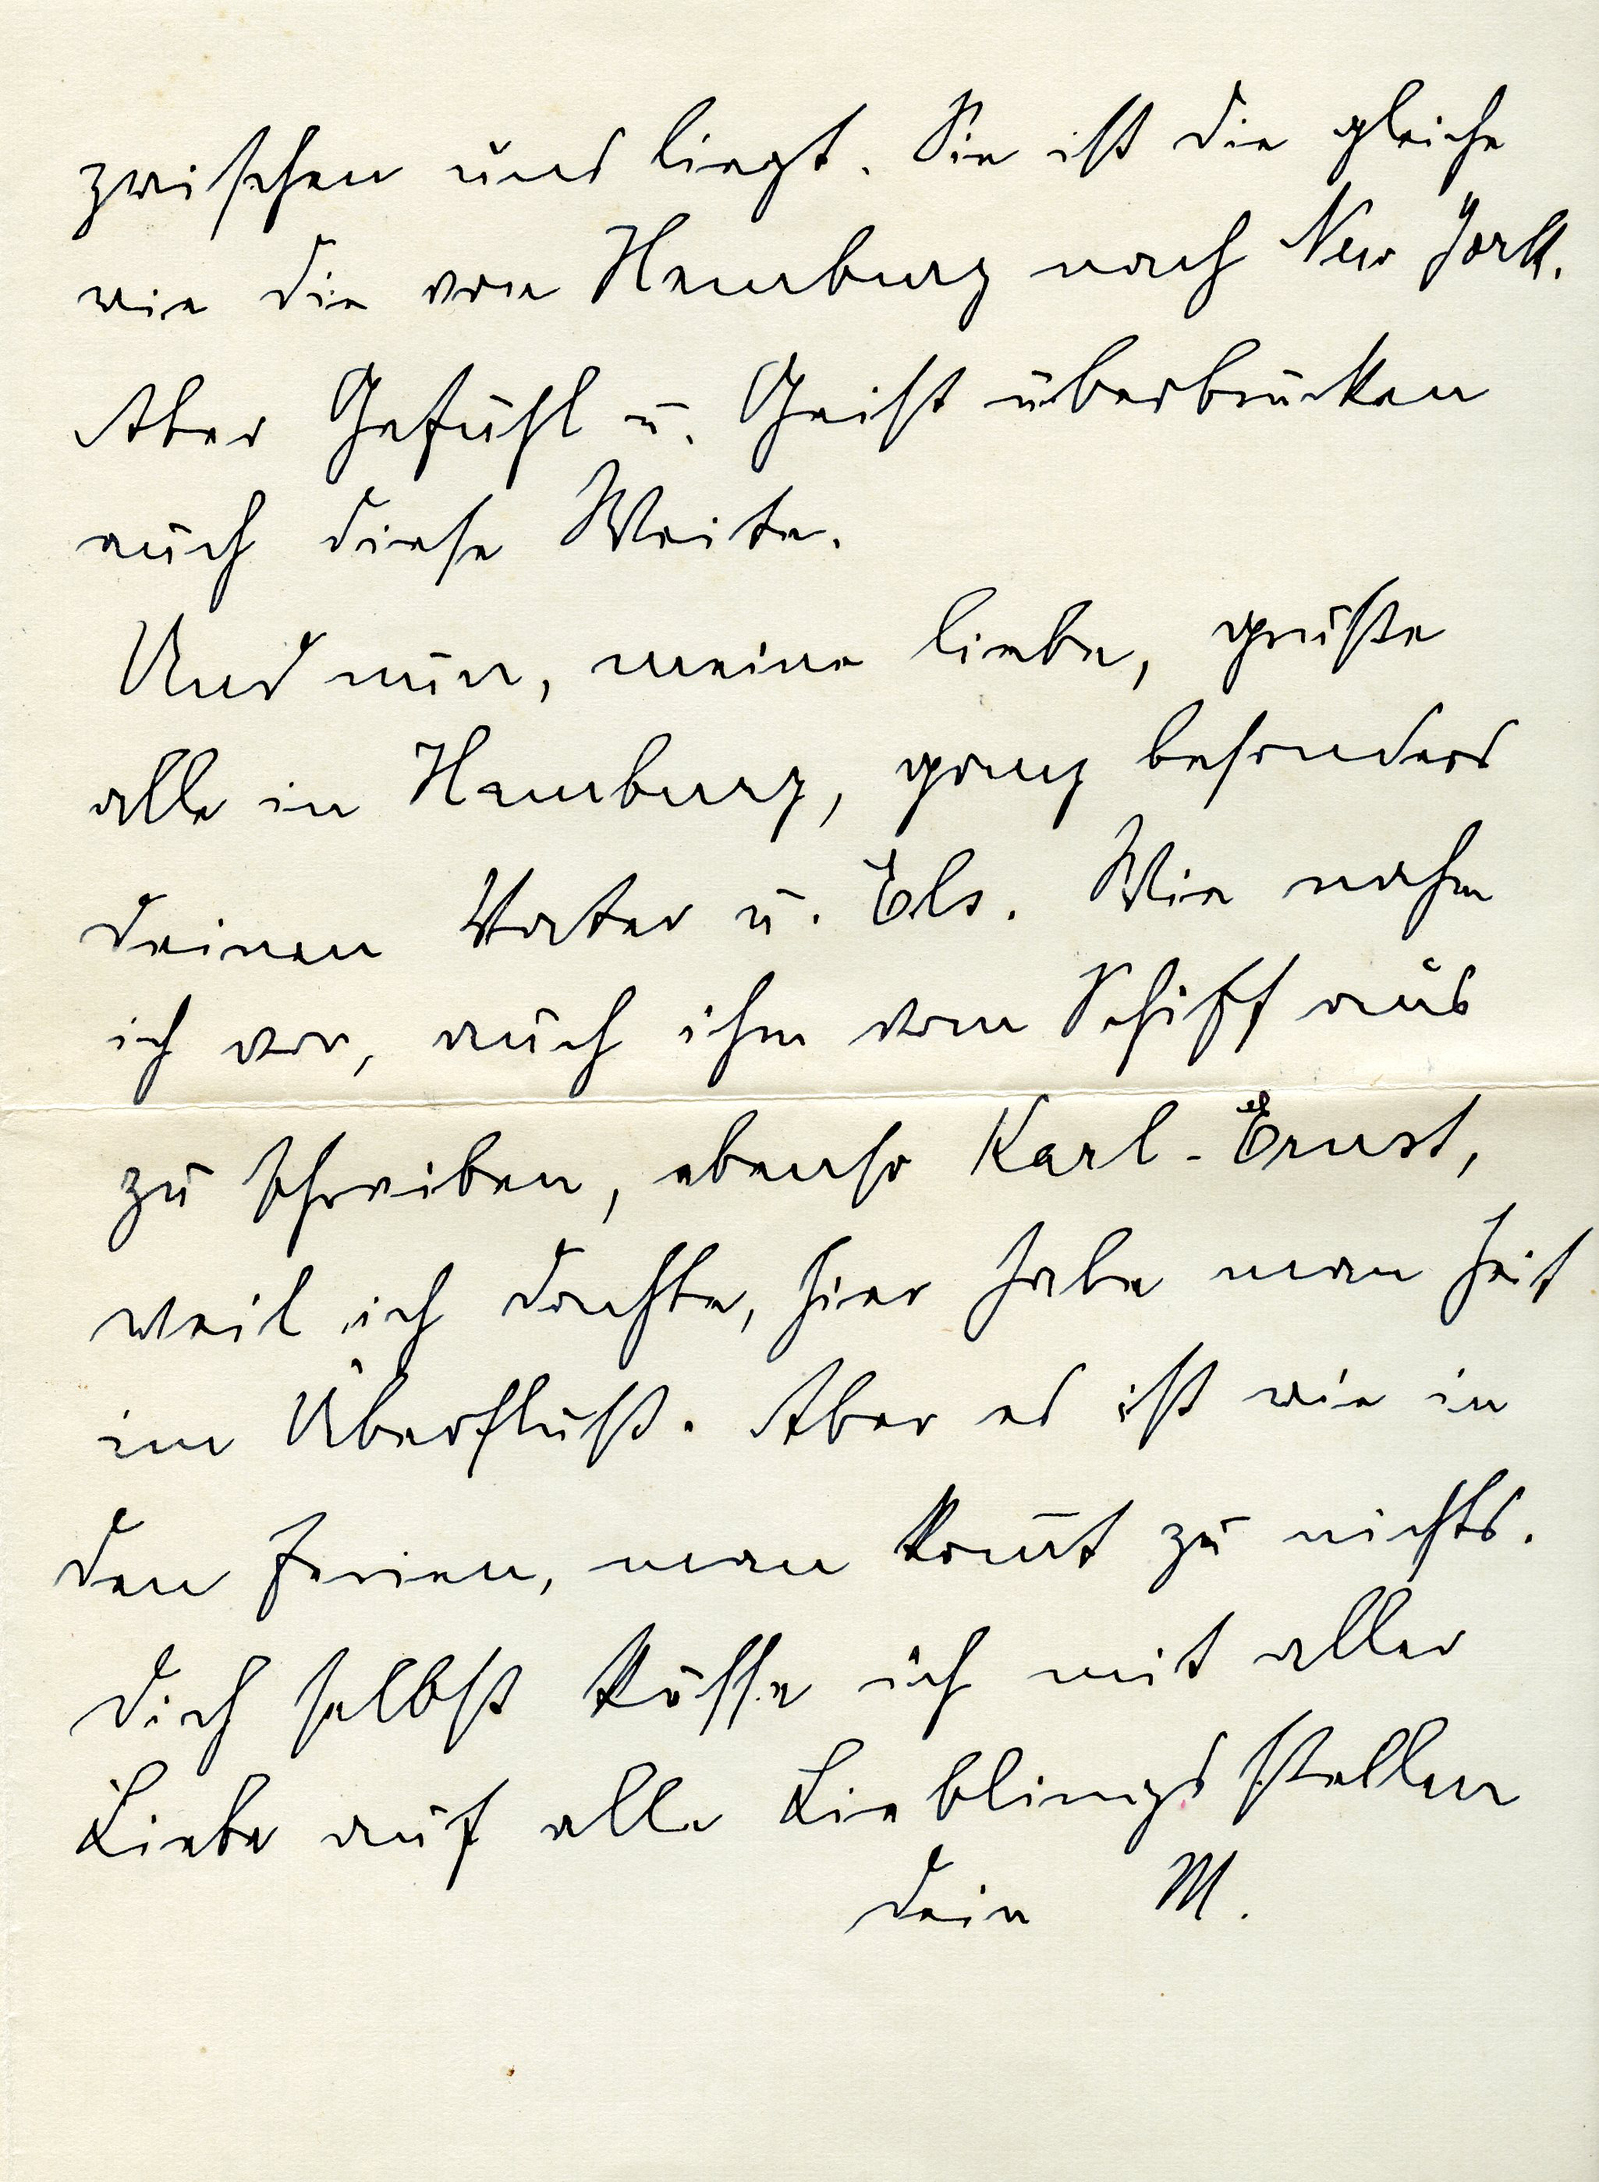 zwischen uns liegt. Sie ist die gleiche
wie die von Hamburg nach New York.
Aber Gefühl u. Geist überbrücken
auch diese Weite.
Und nun, meine liebe, grüße
alle in Hamburg, ganz besonders
deinen Vater u. Els. Wie nahm
ich vor, auch ihm vom Schiff aus
zu schreiben, ebenso Karl-Ernst,
weil ich dachte, hier habe man Zeit
im Überfluß. Aber es ist wie in
den Ferien, man kom̄t zu nichts.
Dich selbst küsse ich mit aller
Liebe auf alle Lieblingsstellen
Dein M.